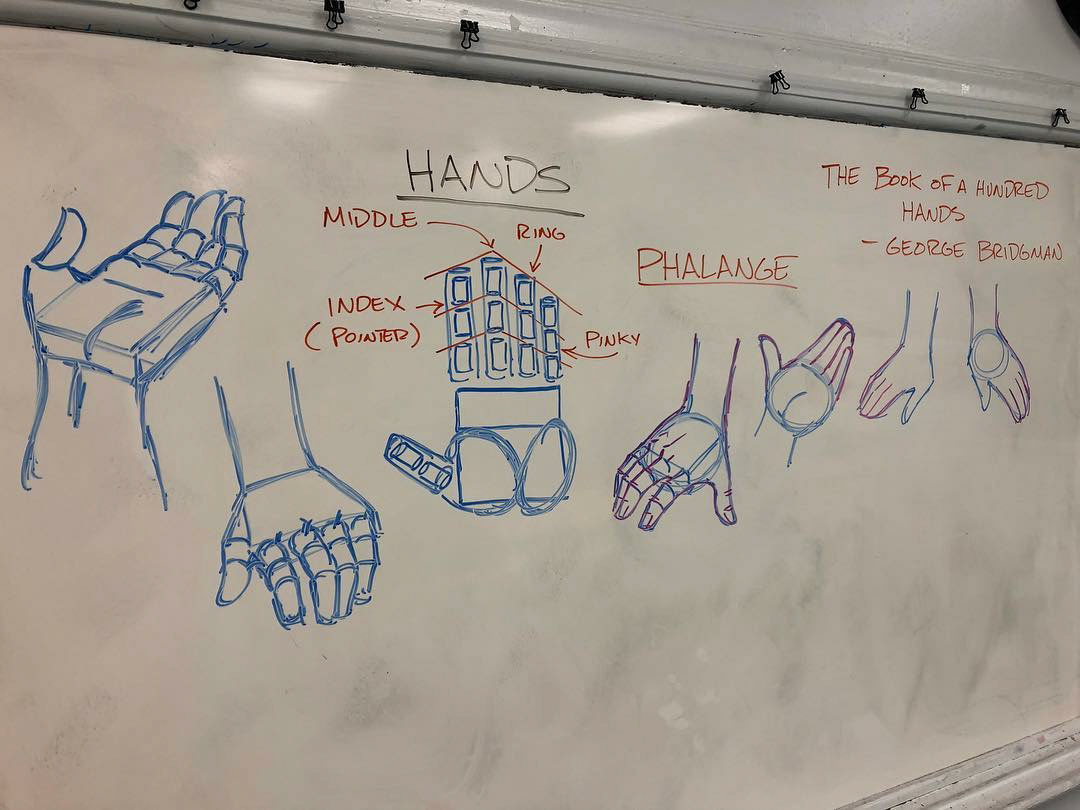 HANDS
MIDDLE
RING
INDEX
(POINTER)
PINKY
PHALANGE
THE BOOK OF A HUNDRED
HANDS
- GEORGE BRIDGMAN